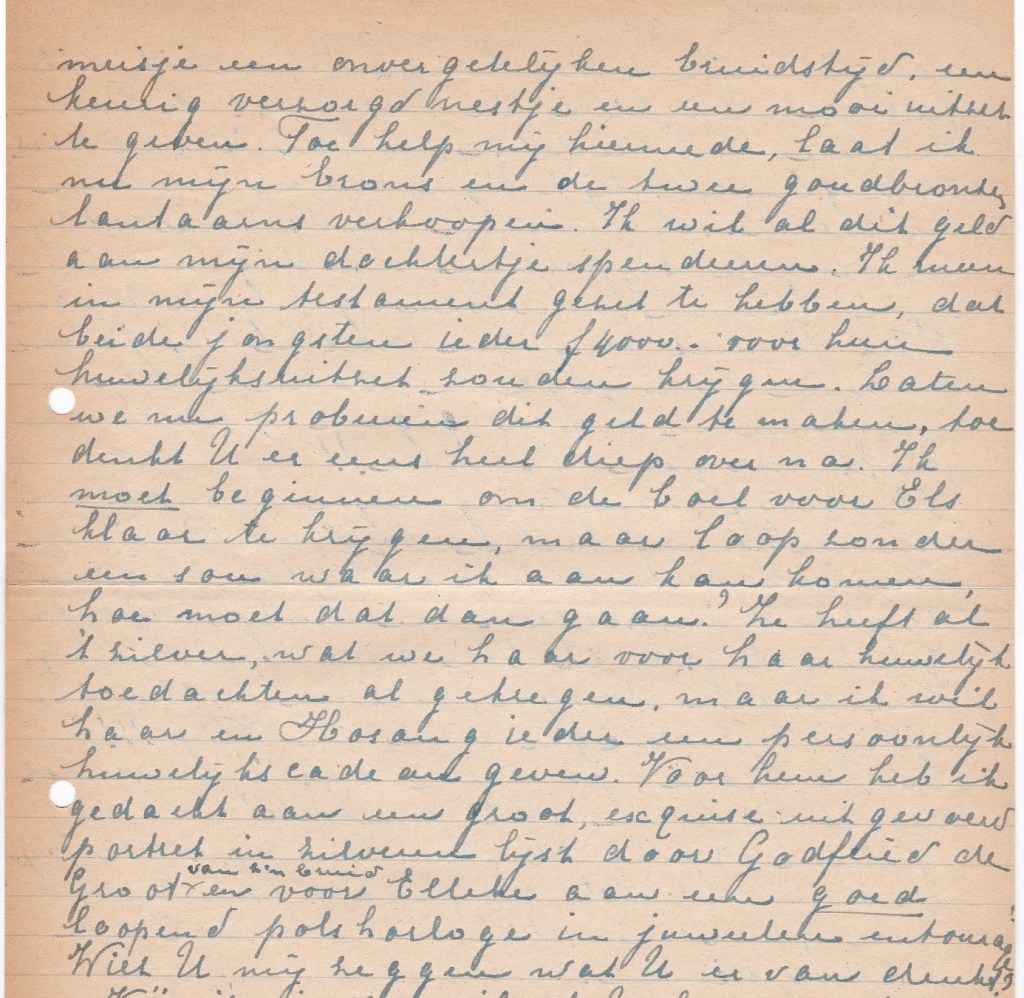 meisje een onvergetelijken bruidstijd, een
keurig verzorgd nestje en een mooi uitzet
te geven. Toe help mij hiermede, laat ik
nu mijn brons en de twee goudbronzen
lantaarns verkoopen. Ik wil al dit geld
aan mijn dochtertje spendeeren. Ik meen
in mijn testament gezet te hebben, dat
beide jongsten ieder f 4000.- voor hun
huwelijksuitzet zouden krijgen. Laten
we nu probeeren dit geld te maken, toe
denkt U er eens heel diep over na. Ik
moet beginnen om de boel voor Els
klaar te krijgen, maar loop zonder
een sou waar ik aan kan komen,
hoe moet dat dan gaan? Ze heeft al
't zilver, wat we haar voor haar huwelijk
toedachten al gekregen, maar ik wil
haar en Hosang ieder een persoonlijk
huwelijkscadeau geven. Voor hem heb ik
gedacht aan een groot, exquise uitgevoerd
portret in zilveren lijst door Godfried de
Groot van z'n bruid en voor Elleke aan een goed
loopend polshorloge in juweelen entourage
Wilt U mij zeggen wat U er van denkt?